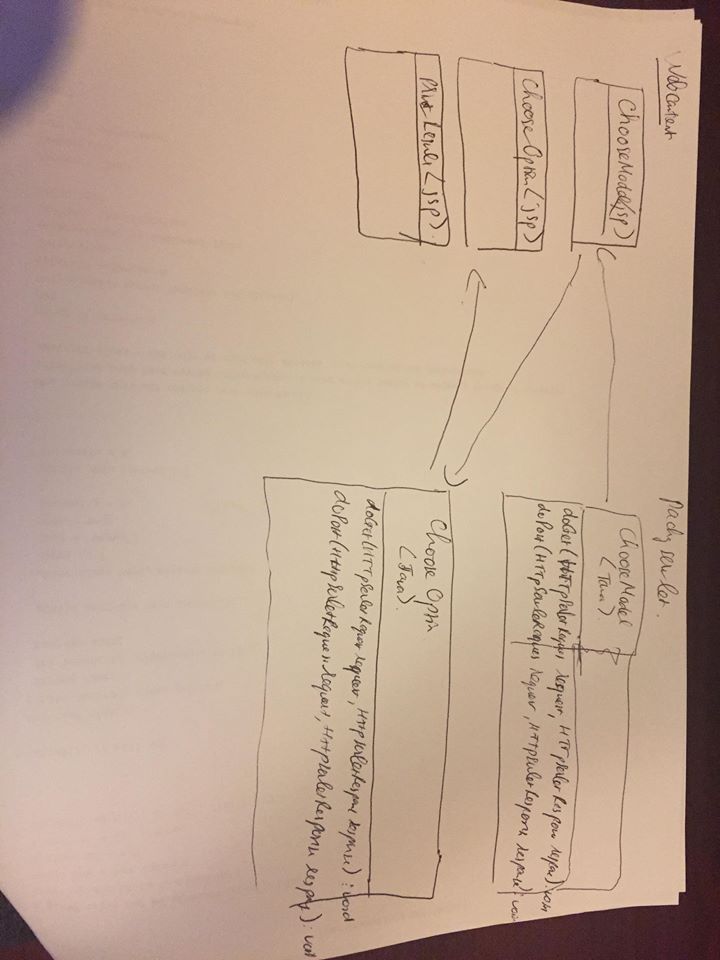 WebContent
ChooseModel(jsp)
Choose Option(jsp)
Print Result (jsp)
servlet.
ChooseModel
(Java)
doGet(HTTpServletReques request, HTTpServletRespone response): void
doPost(HTTpServletReques request, HTTpServletResponse response): void
Choose Option
(Java).
doGet(HTTpServletRequest request, HttpServletRespone response): void
doPost(HttpServletRequest request, HttpServletResponse ): void